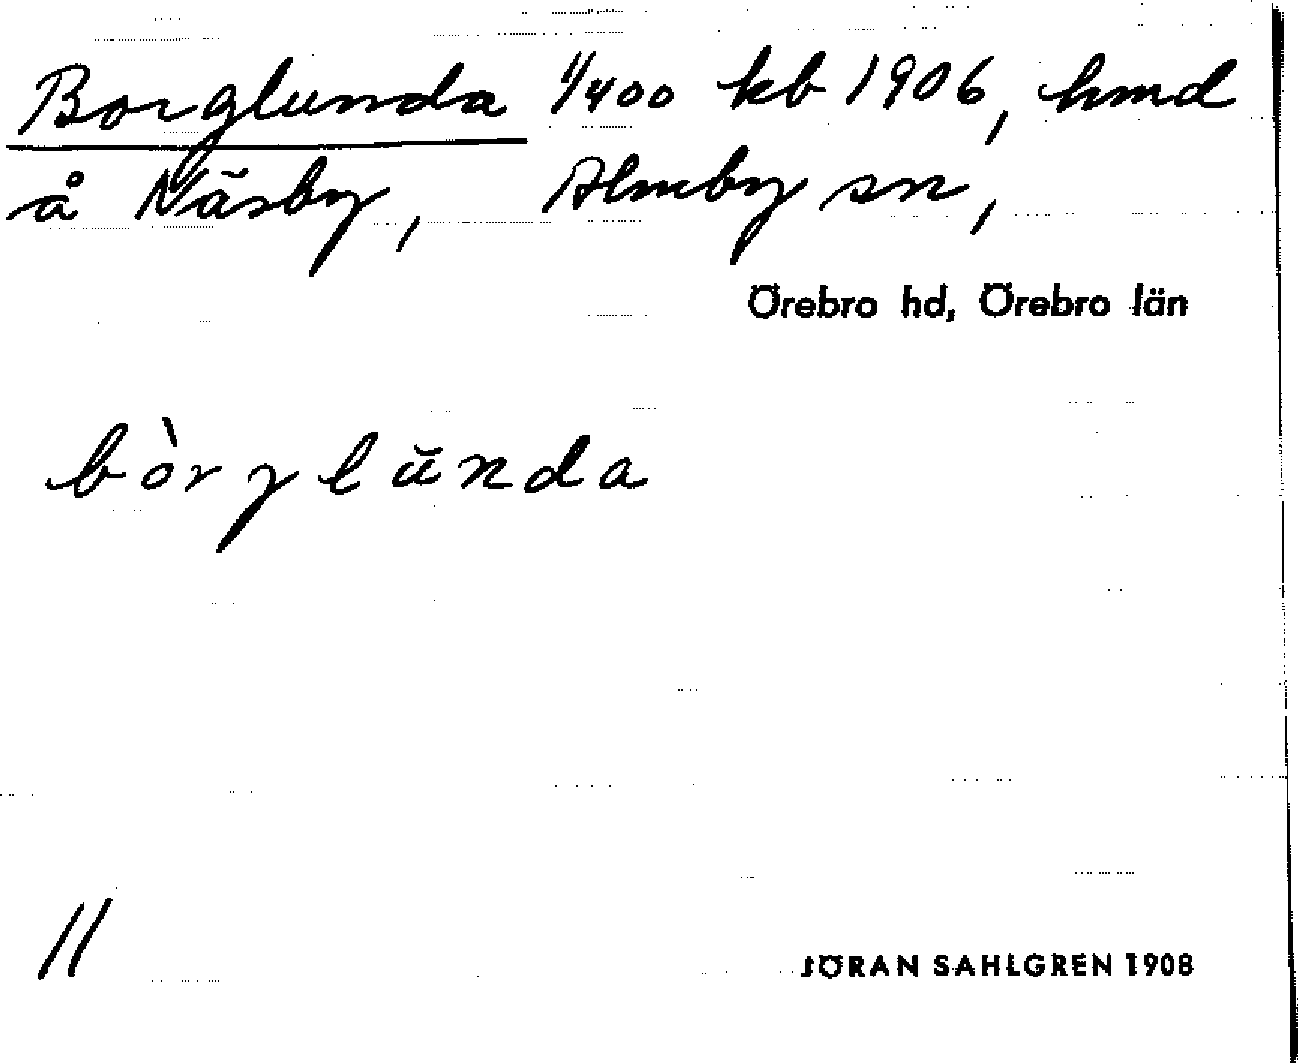 Borglunda 1/400 kb 1906, hmd
å Näsby, Almby sn,
Örebro hd, Örebro län
bòrglŭnda
11
JÖRAN SAHLGREN 1908